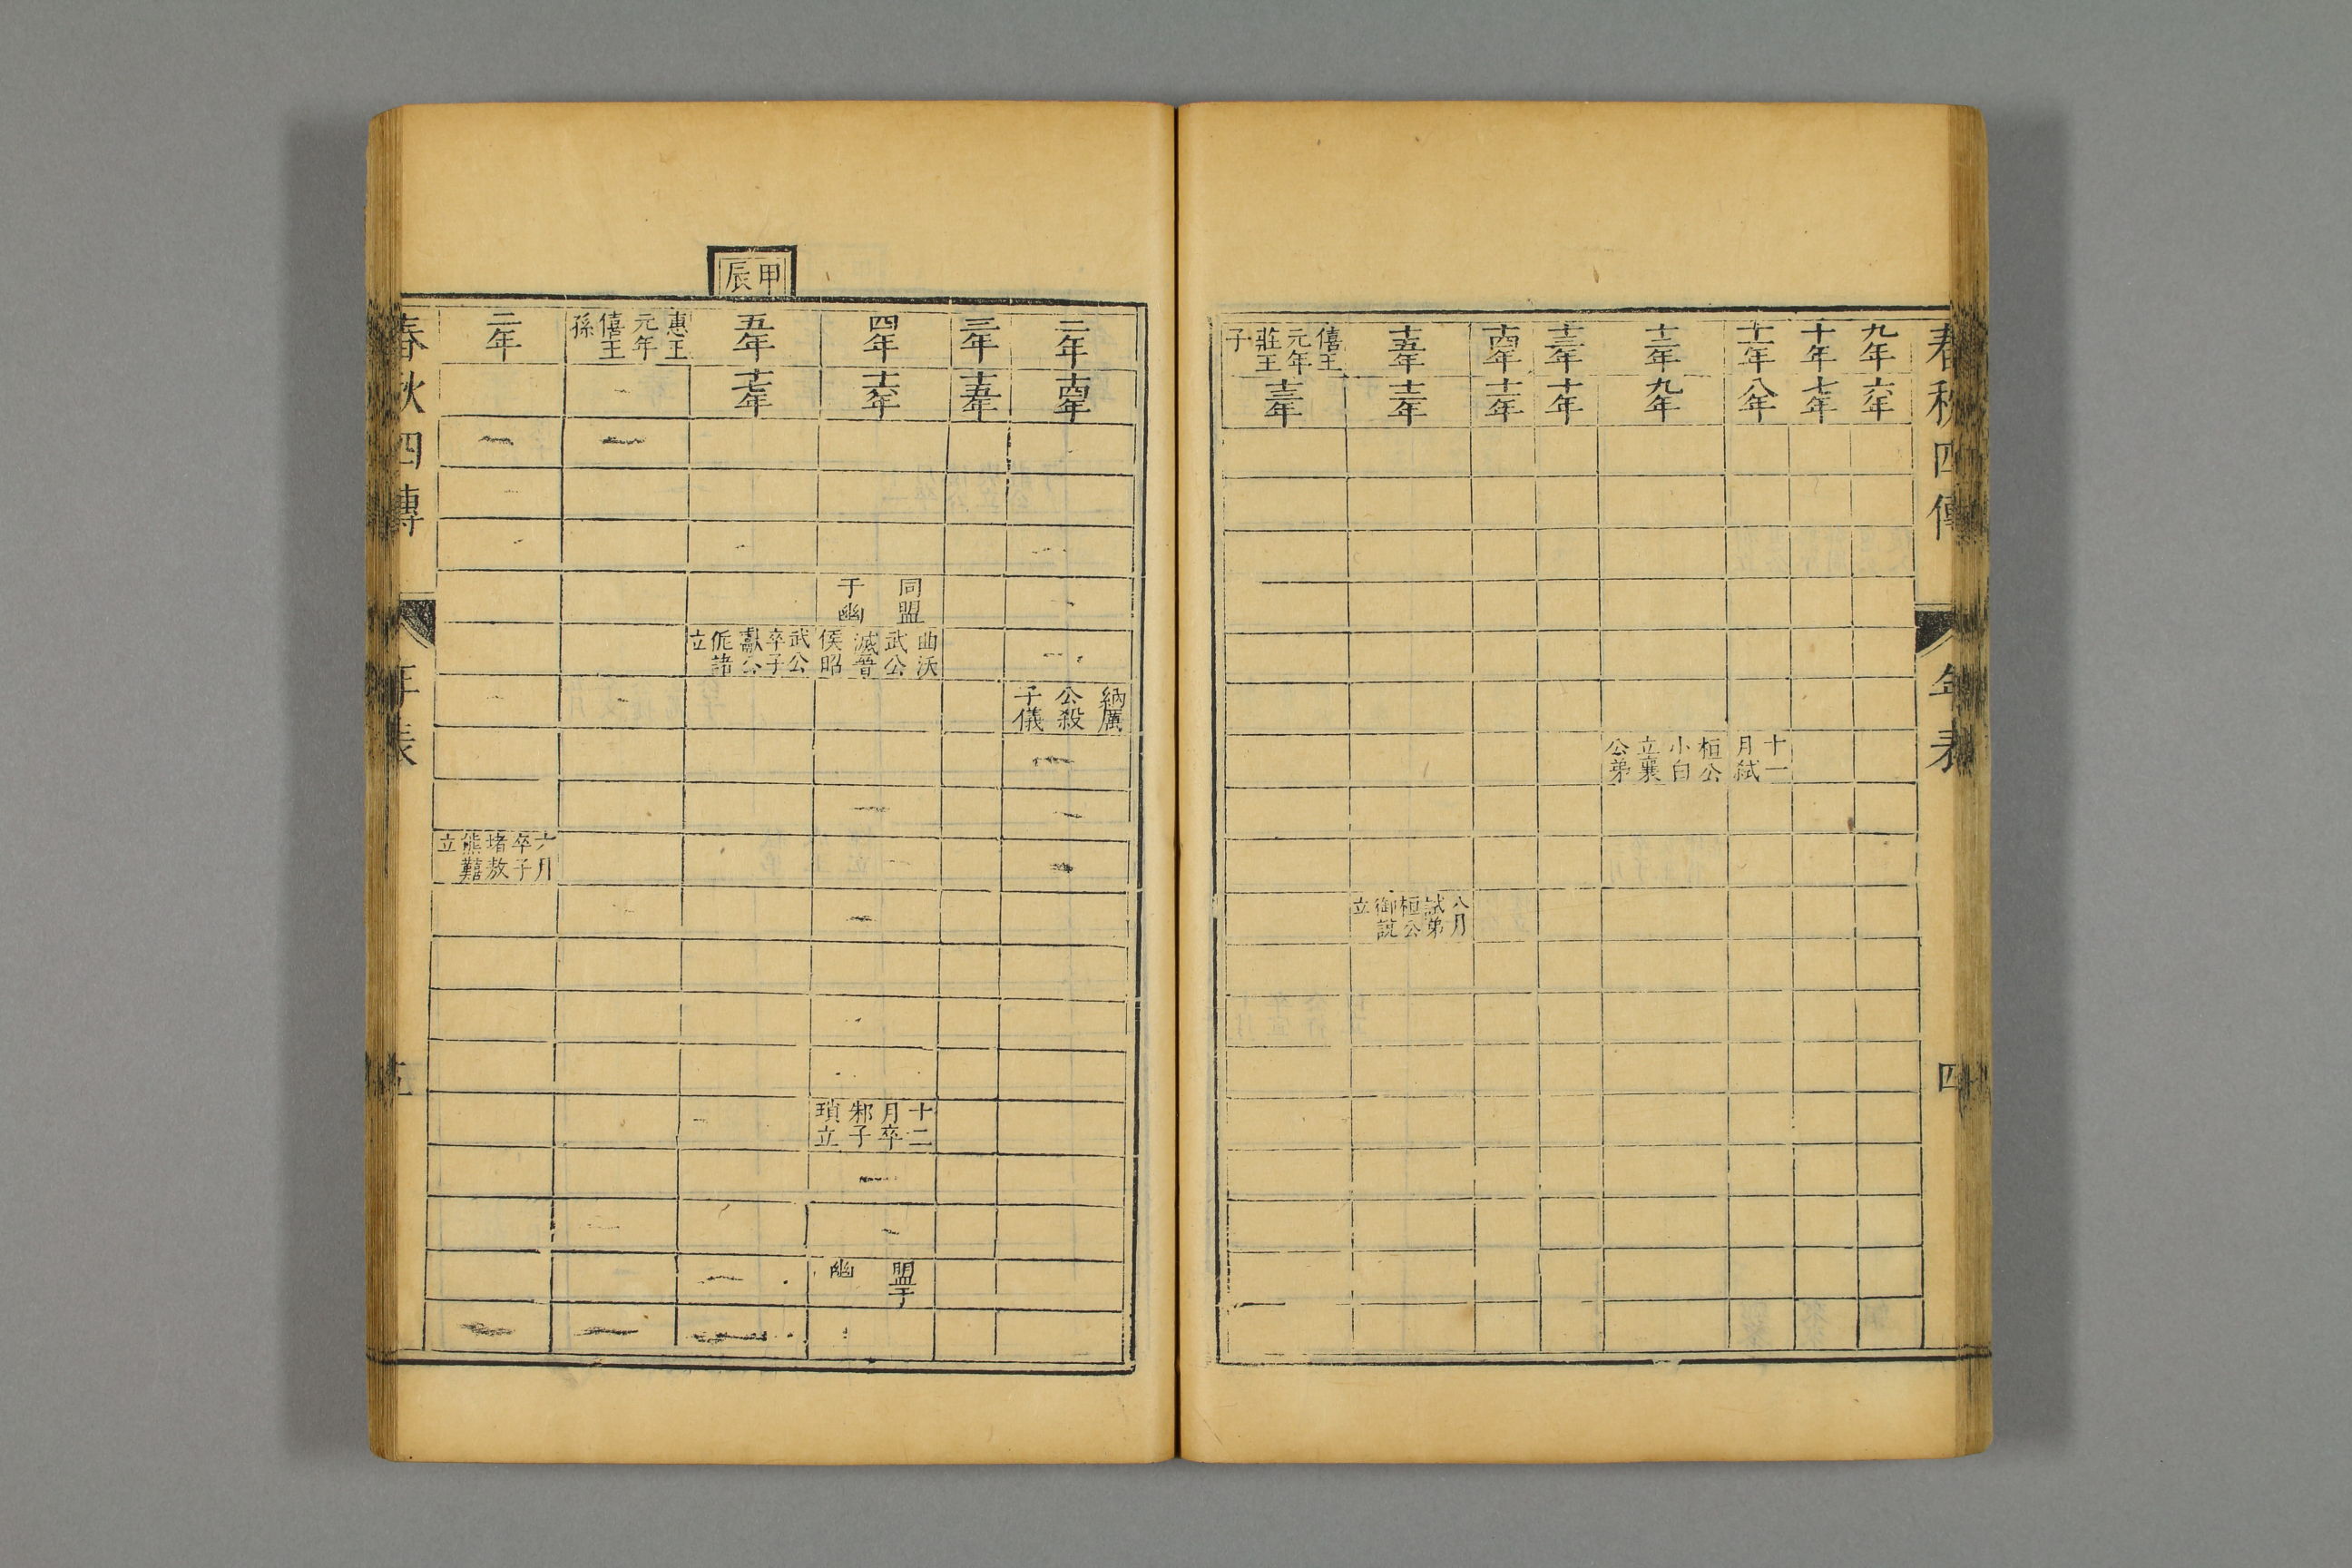 春秋四傳 年表 四
九年
六年
十年
七年
十一年
八年
十一
月弑
十二年
九年
桓公
小白
立襄
公弟
十三年
十年
十四年
十一年
十五年
十二年
八月
弑弟
桓公
御說
立
僖王
元年
莊王
子
十三年
甲辰
二年
十四年
納厲
公殺
子儀
三年
十五年
四年
十六年
同盟
于幽
曲沃
武公
滅晉
侯昭
十二
月卒
邾子
瑣立
盟于
幽
五年
十七年
武公
卒子
獻公
佹諸
立
惠王
元年
僖王
孫
二年
六月
卒子
堵敖
熊囏
立
春秋四傳 年表 五